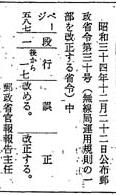 昭和三十四年十二月二十二日公布郵
政省令第三十号（無線局運用規則の一
部を改正する省令）中
ページ 段 行 誤 正
五七二 一 後から一七 改める。 改正する。
郵政省官報報告主任